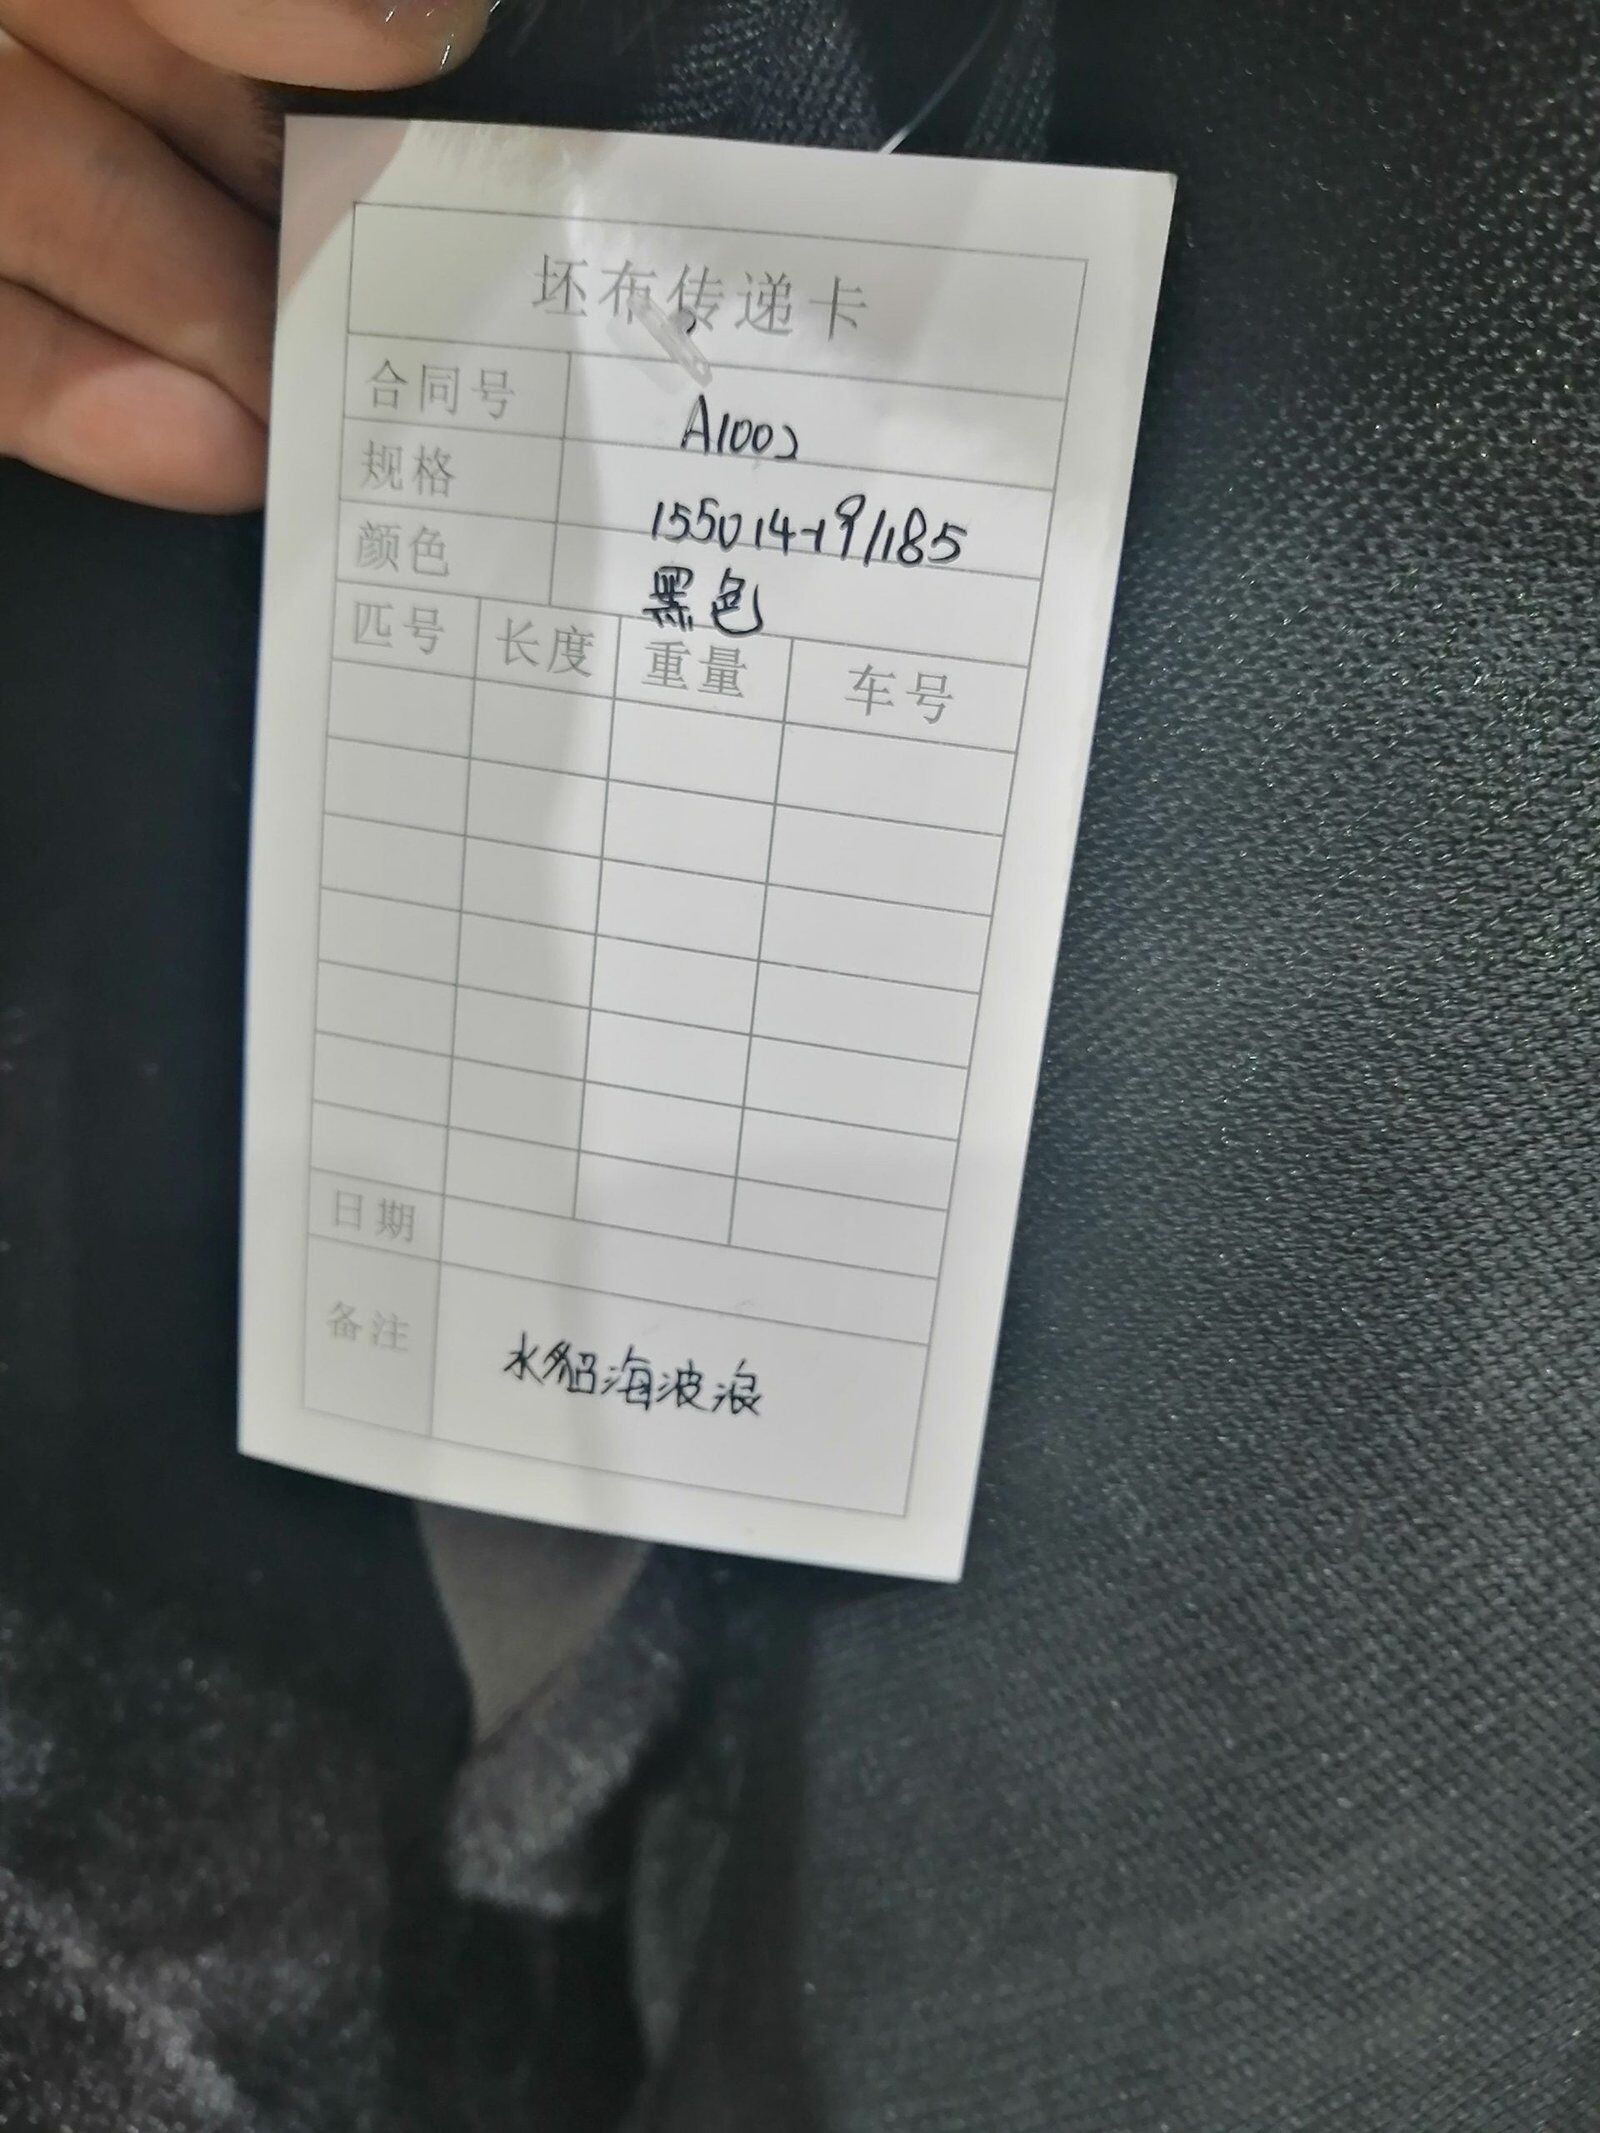 坯布传递卡
合同号 A1002
规格 155014-19/185
颜色 黑色
匹号 长度 重量 车号
日期
备注 水貂海波浪